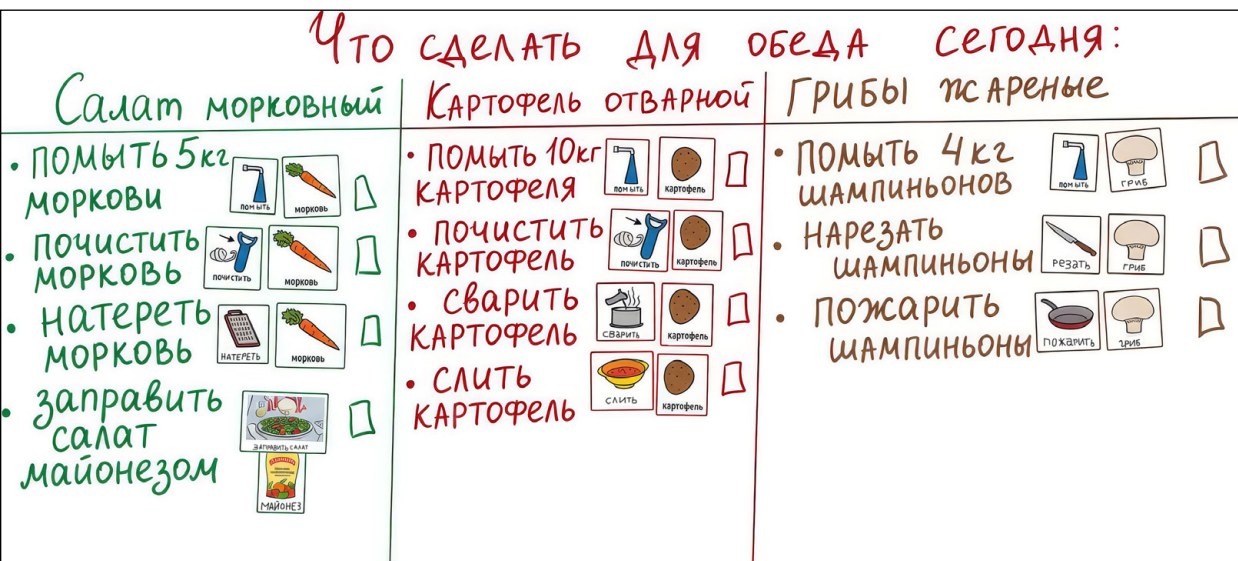 Что сделать для обеда сегодня:
Салат морковный
• помыть 5 кг
моркови
помыть
морковь
• почистить
морковь
почистить
морковь
• натереть
морковь
натереть
морковь
• заправить
салат
майонезом
заправить салат
майонез
Картофель отварной
• помыть 10 кг
картофеля
помыть
картофель
• почистить
картофель
почистить
картофель
• сварить
картофель
сварить
картофель
• слить
картофель
слить
картофель
Грибы жареные
• помыть 4 кг
шампиньонов
помыть
гриб
• нарезать
шампиньоны
резать
гриб
• пожарить
шампиньоны
пожарить
гриб